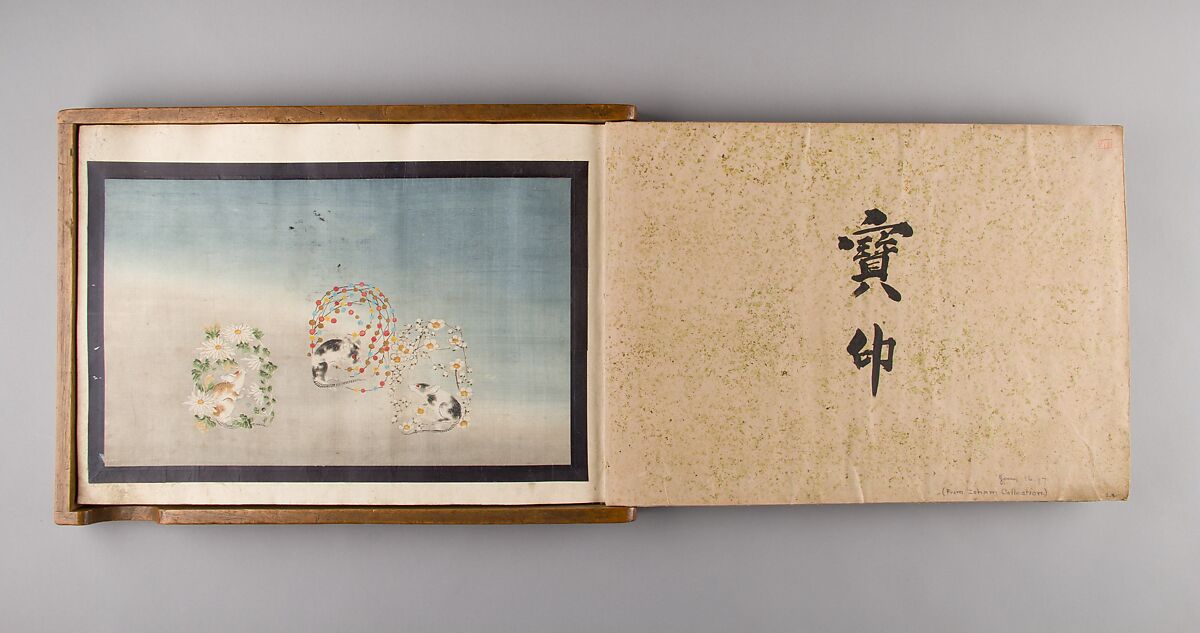 寶
印
(From Isham Collection)